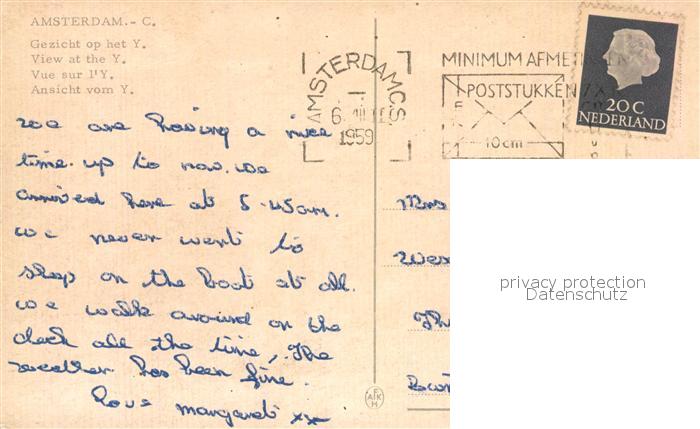 AMSTERDAM.- C.
Gezicht op het Y.
View at the Y.
Vue sur l'Y.
Ansicht vom Y.
we are having a nice
time. up to now. we
arrived here at 5.45am.
we never went to
sleep on the boat at all.
we walk around on the
deck all the time, The
weather has been fine.
love margaret xx
AMSTERDAM C.S.
1959
MINIMUM AFME
POSTSTUKKEN
10cm
20C
NEDERLAND
Mrs
privacy protection
Datenschutz